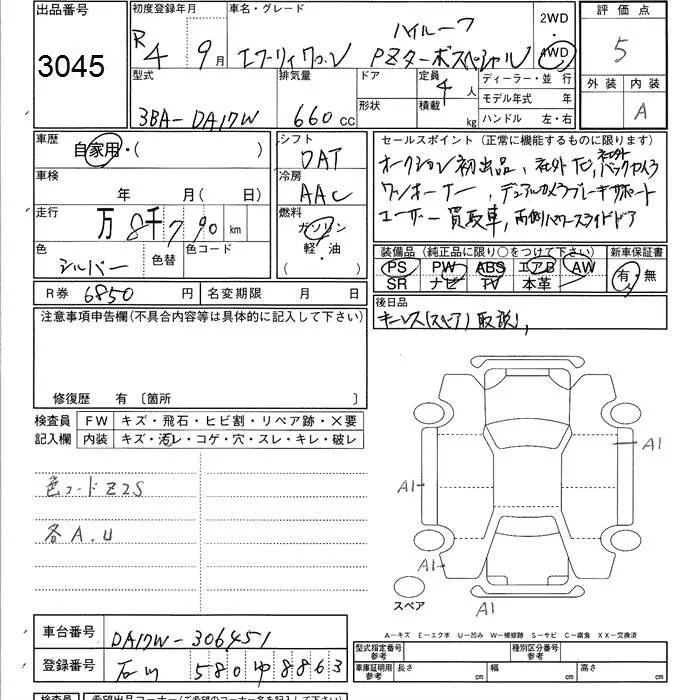 出品番号 3045
初度登録年月 R4 9月
車名・グレード エブリィワゴン ハイルーフ PZターボスペシャル
2WD・4WD
評価点 5
外装 内装 A
型式 3BA-DA17W
排気量 660cc
ドア 形状
定員 4人
積載 kg
ディーラー・並行
モデル年式 年
ハンドル 左・右
車歴 自家用・( )
車検 年 月( 日)
走行 万8千790km
色 シルバー 色替 色コード
シフト DAT
冷房 AAC
燃料 ガソリン (軽・油)
セールスポイント(正常に機能するものに限ります)
オークション初出品、社外TV、社外バックカメラ
ワンオーナー、デュアルカメラブレーキサポート
ユーザー買取車、両側パワースライドドア
装備品(純正品に限り○をつけて下さい) 新車保証書
PS PW ABS エアB AW 有・無
SR ナビ TV 本革
R券 6850円 名変期限 月 日
後日品
キーレス(スペア)取説、
注意事項申告欄(不具合内容等は具体的に記入して下さい)
修復歴 有 〔箇所 〕
検査員 FW キズ・飛石・ヒビ割・リペア跡・×要
記入欄 内装 キズ・汚レ・コゲ・穴・スレ・キレ・破レ
色コードZ2S
各A.U
A1
A1
A1
A1
スペア
A-キズ E-エクボ U-凹み W-補修跡 S-サビ C-腐食 XX-交換済
車台番号 DA17W-306451
登録番号 石川 580 ゆ 8863
型式指定番号 参考 種別区分番号 参考
車庫証明用 参考 長さ cm 幅 cm 高さ cm
検査員 希望出品コーナー(ご希望のコーナー名を記入して下さい)